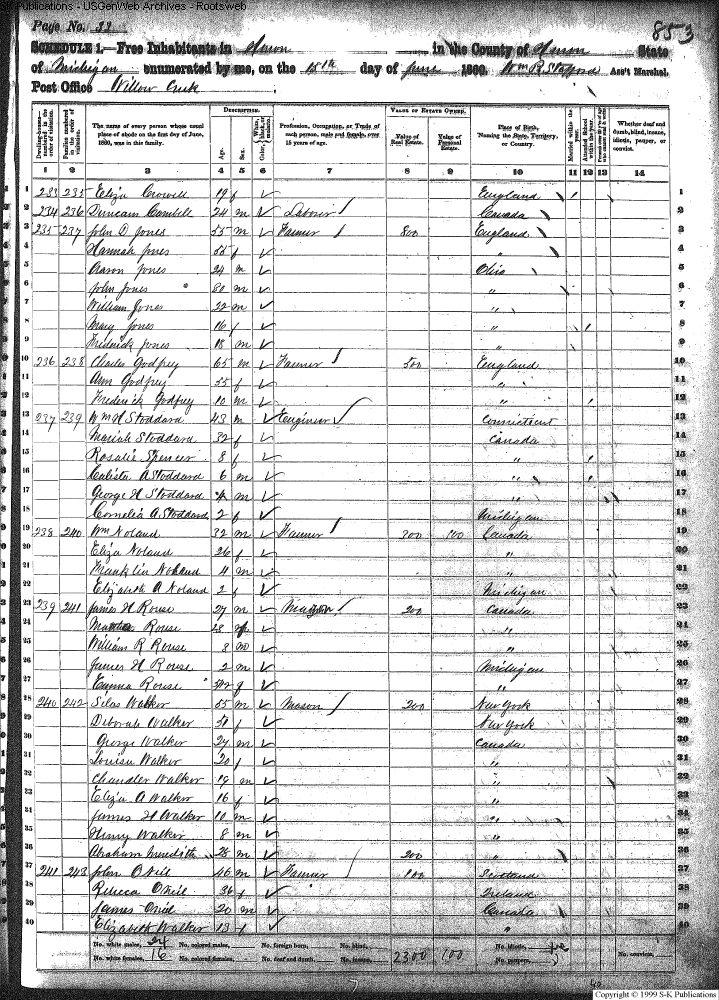 S-K Publications - USGenWeb Archives - Rootsweb
Page No. 33
853
SCHEDULE 1.—Free Inhabitants in Huron in the County of Huron State
of Michigan enumerated by me, on the 15th day of June 1860. Wm R Stafford Ass't Marshal.
Post Office Willow Creek
Dwelling-houses— numbered in the order of visitation. Families numbered in the order of visitation. The name of every person whose usual place of abode on the first day of June, 1860, was in this family. DESCRIPTION. Age. Sex. Color, White, black, or mulatto. Profession, Occupation, or Trade of each person, male and female, over 15 years of age. VALUE OF ESTATE OWNED. Value of Real Estate. Value of Personal Estate. Place of Birth, Naming the State, Territory, or Country. Married within the year. Attended School within the year. Whether deaf and dumb, blind, insane, idiotic, pauper, or convict.
1 2 3 4 5 6 7 8 9 10 11 12 13 14
1 233 235 Eliza Crowell 19 f England 1
2 234 236 Duncan Cambell 24 m Laborer Canada 2
3 235 237 John D Jones 55 m Farmer 800 England 3
4 Hannah Jones 55 f " 4
5 Aaron Jones 24 m Ohio 5
6 John Jones 20 m " 6
7 William Jones 22 m " 7
8 Mary Jones 16 f " 8
9 Frederick Jones 18 m " 9
10 236 238 Charles Godfrey 65 m Farmer 500 England 10
11 Ann Godfrey 55 f " 11
12 Frederick Godfrey 10 m " 12
13 237 239 Wm H Stoddard 43 m Engineer Connecticut 13
14 Mariah Stoddard 32 f Canada 14
15 Rosalie Spencer 8 f " 15
16 Calista A Stoddard 6 m " 16
17 George H Stoddard 4 m " 17
18 Cornelia A. Stoddard 2 f Michigan 18
19 238 240 Wm Noland 32 m Farmer 300 100 Canada 19
20 Eliza Noland 26 f " 20
21 Franklin Noland 4 m " 21
22 Elizabeth A Noland 2 f Michigan 22
23 239 241 James H Rouse 27 m Mason 200 Canada 23
24 Rouse 28 f " 24
25 William R Rouse 8 m " 25
26 James H Rouse 2 m Michigan 26
27 Emma Rouse f " 27
28 240 242 Silas Walker 55 m Mason 200 New York 28
29 Deborah Walker f New York 29
30 George Walker 24 m Canada 30
31 Louisa Walker 20 f " 31
32 Chandler Walker 18 m " 32
33 Eliza A Walker 16 f " 33
34 James H Walker 10 m " 34
35 Henry Walker 8 m " 35
36 Abraham Meredith 28 m 200 " 36
37 241 243 John O Neil 46 m Farmer 100 Scotland 37
38 Rebecca O Neil 36 f Ireland 38
39 James O Neil 20 m Canada 39
40 Elizabeth Walker 13 f " 40
No. white males, 24 No. colored males, No. foreign born, No. blind, No. idiotic, No. convicts,
No. white females, 16 No. colored females, No. deaf and dumb, No. insane, 2300 100 No. paupers,
Copyright © 1999 S-K Publications